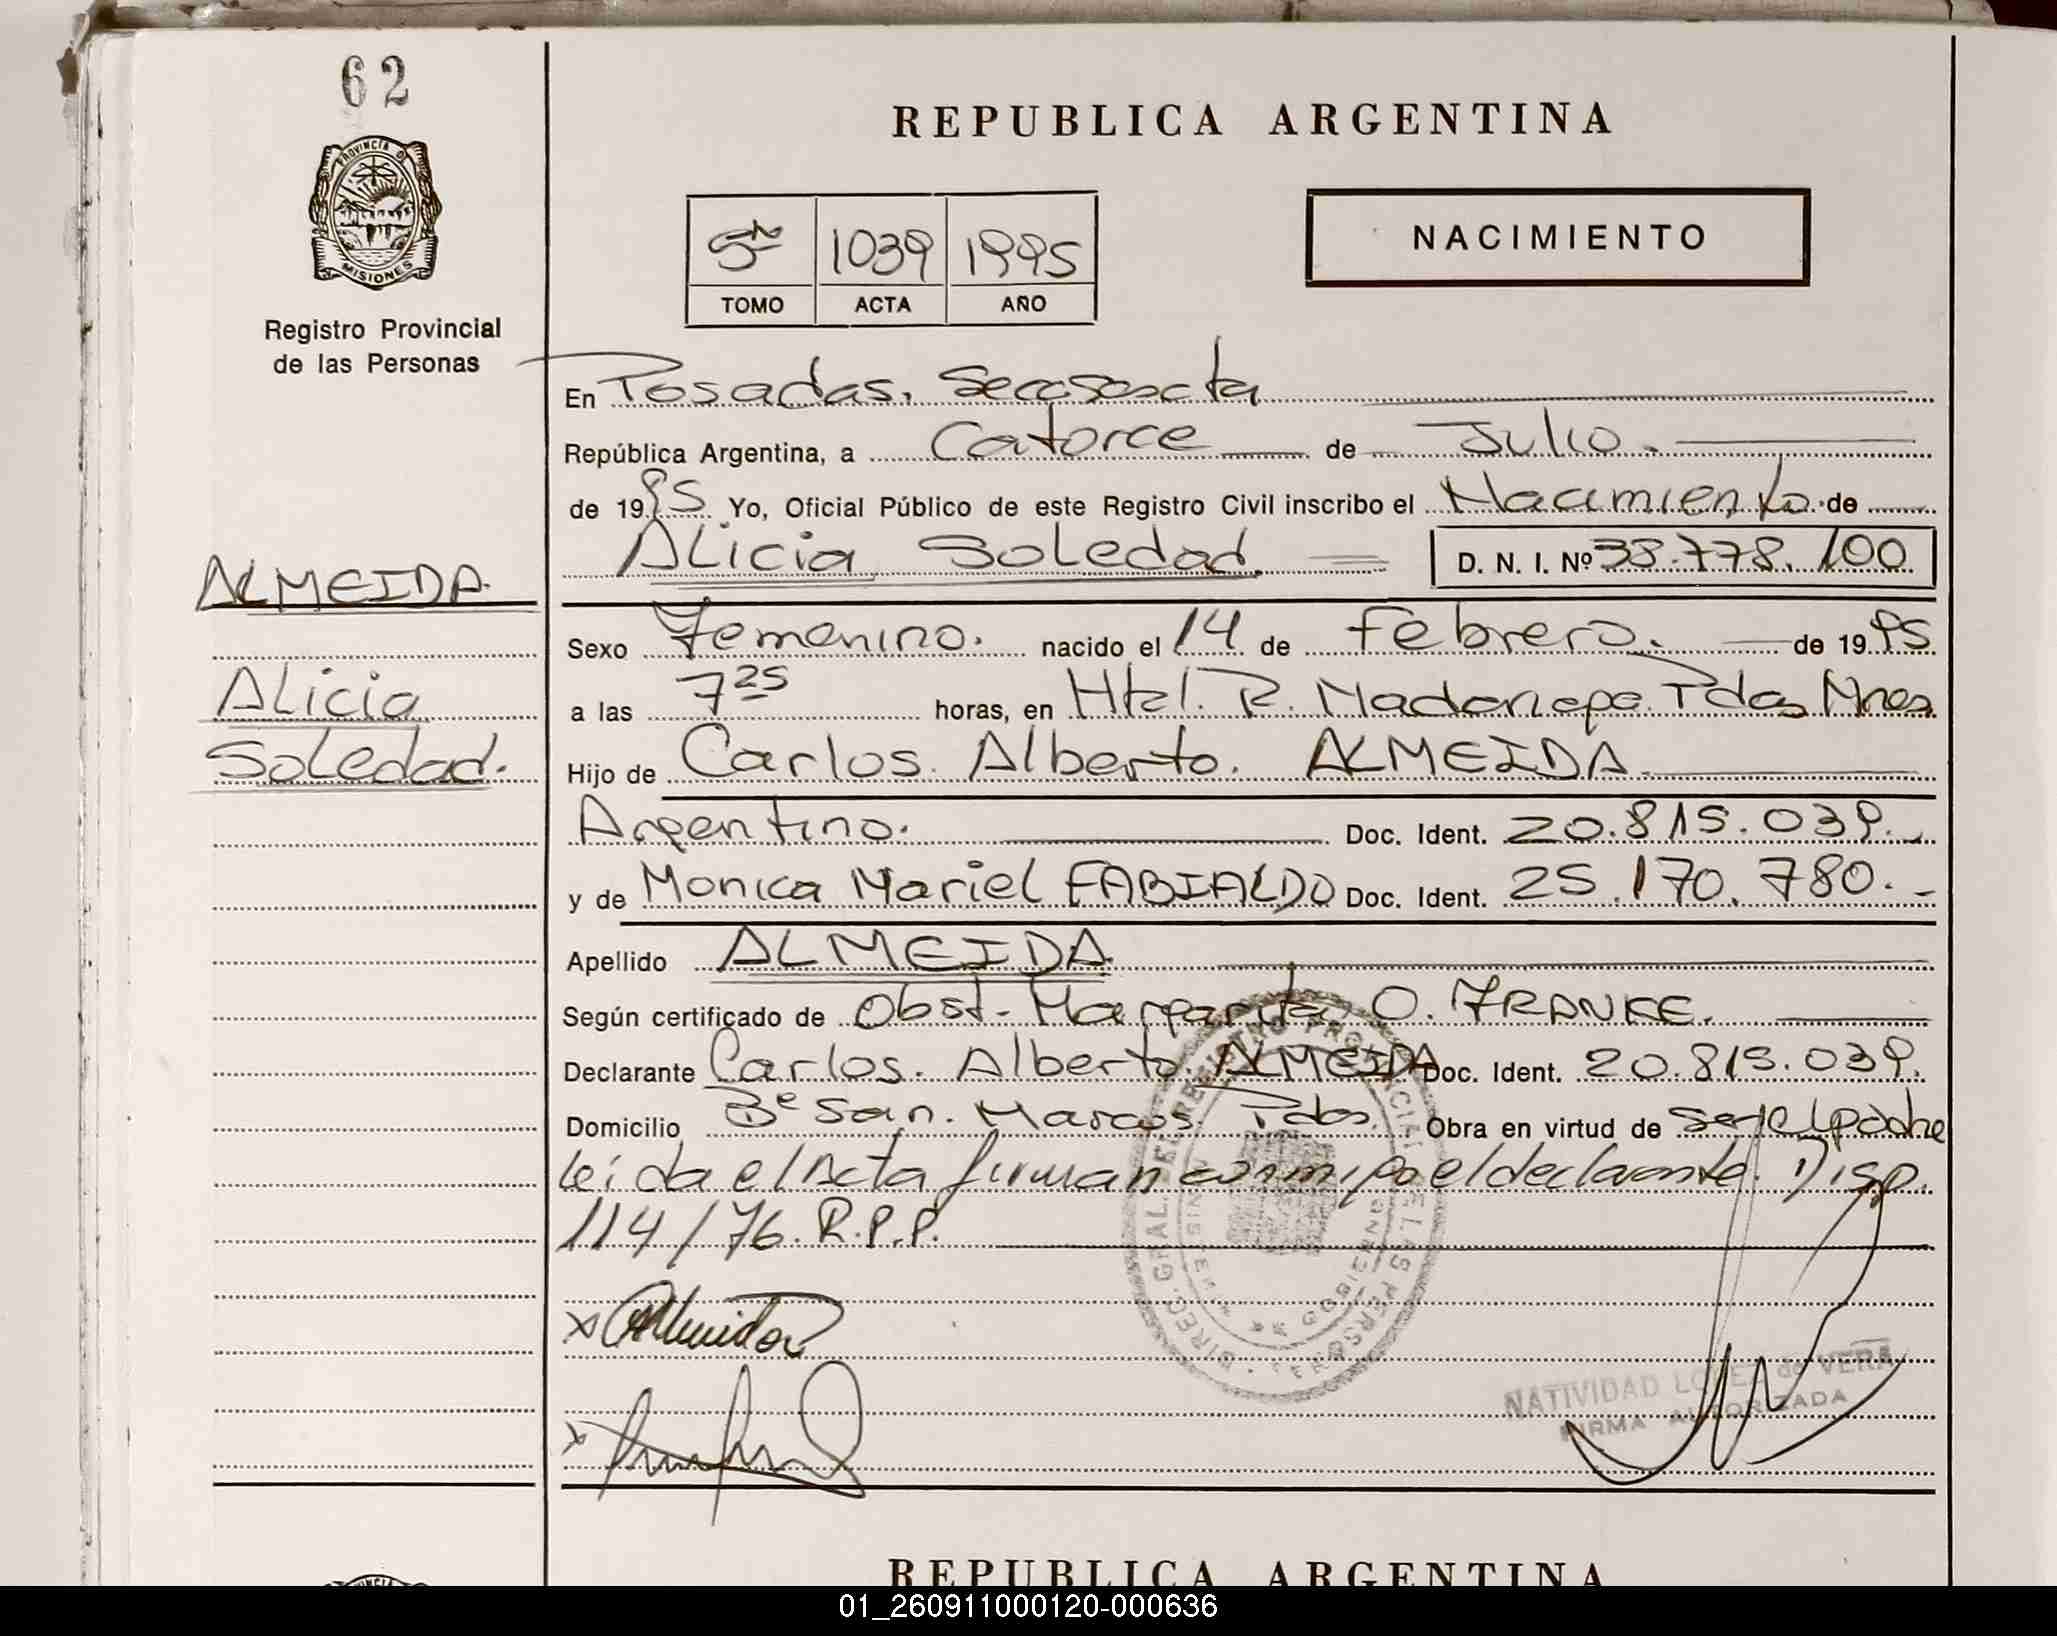 62
PROVINCIA DE
MISIONES
Registro Provincial
de las Personas
REPUBLICA ARGENTINA
5to 1039 1995
TOMO ACTA AÑO
NACIMIENTO
En Posadas. Secc Sexta
República Argentina, a Catorce de Julio.
de 1995 Yo, Oficial Público de este Registro Civil inscribo el Nacimiento de
Alicia Soledad. D. N. I. Nº 38.778.100
ALMEIDA.
Alicia
Soledad.
Sexo Femenino. nacido el 14 de Febrero. de 1995
a las 7 25 horas, en Htal. R. Madariaga. Pdas Mnes
Hijo de Carlos. Alberto. ALMEIDA.
Argentino. Doc. Ident. 20.815.039.-
y de Monica Mariel FABIALDO Doc. Ident. 25.170.780.-
Apellido ALMEIDA
Según certificado de Obst. Margarita O. FRANKE.
Declarante Carlos. Alberto. ALMEIDA Doc. Ident. 20.815.039.
Domicilio Bº San. Marcos. Pdas. Obra en virtud de ser el padre
Leida el Acta firman conmigo el declarante. Disp.
114/76. R.P.P.
x
x
NATIVIDAD LOPEZ de VERA
FIRMA AUTORIZADA
REPUBLICA ARGENTINA
01_260911000120-000636